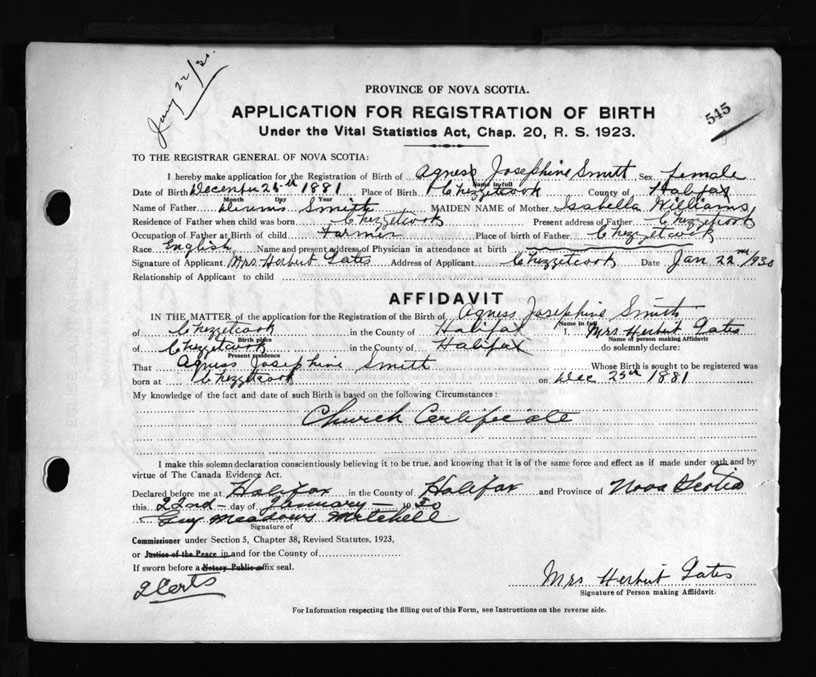 Jany 22/30.
PROVINCE OF NOVA SCOTIA.
APPLICATION FOR REGISTRATION OF BIRTH
545
Under the Vital Statistics Act, Chap. 20, R. S. 1923.
TO THE REGISTRAR GENERAL OF NOVA SCOTIA:
I hereby make application for the Registration of Birth of Agness Josephine Smith Sex female
Name in full
Date of Birth December 25th 1881 Place of Birth Chezzetcook County of Halifax
Month Day Year
Name of Father Smith MAIDEN NAME of Mother Isabella Williams
Residence of Father when child was born Chezzetcook Present address of Father Chezzetcook
Occupation of Father at Birth of child Farmer Place of birth of Father Chezzetcook
Race English Name and present address of Physician in attendance at birth
Signature of Applicant Mrs Herbert Gates Address of Applicant Chezzetcook Date Jan 22nd/1930
Relationship of Applicant to child
AFFIDAVIT
IN THE MATTER of the application for the Registration of the Birth of Agness Josephine Smith
Name in full
of Chezzetcook in the County of Halifax I, Mrs Herbert Gates
Birth place Name of person making Affidavit
of Chezzetcook in the County of Halifax do solemnly declare:
Present residence
That Agness Josephine Smith Whose Birth is sought to be registered was
born at Chezzetcook on Dec 25th 1881
My knowledge of the fact and date of such Birth is based on the following Circumstances:
Church Certificate
I make this solemn declaration conscientiously believing it to be true, and knowing that it is of the same force and effect as if made under oath and by
virtue of The Canada Evidence Act.
Declared before me at Halifax in the County of Halifax and Province of Nova Scotia
this 22nd day of January 30
Guy Meadows Mitchell
Signature of
Commissioner under Section 5, Chapter 38, Revised Statutes, 1923,
or Justice of the Peace in and for the County of
If sworn before a Notary Public affix seal.
2 Certs
Mrs Herbert Gates
Signature of Person making Affidavit.
For Information respecting the filling out of this Form, see Instructions on the reverse side.